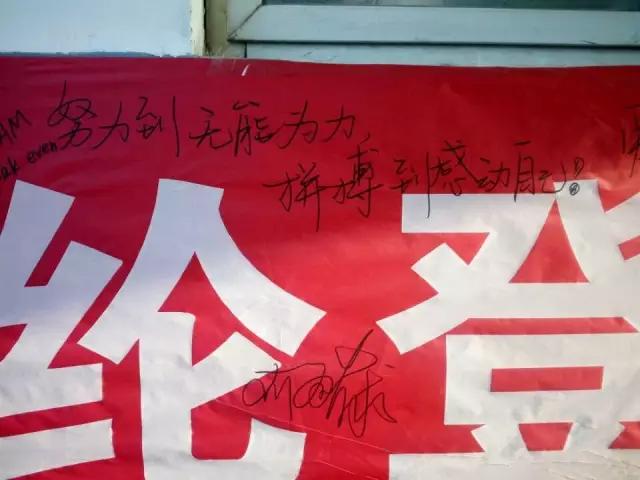 AM
努力到无能为力
even
拼搏到感动自己!
给登